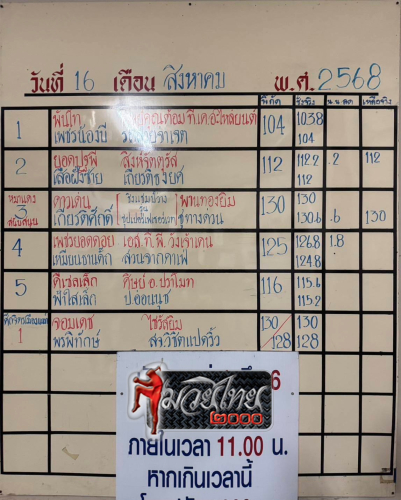 วันที่ 16 เดือน สิงหาคม พ.ศ. 2568
พิกัด ชั่งจริง น.น.ลด เหลือจริง
1 พันไท 104 103.8
เพชรน้องบี 104
2 ยอดปฐพี สิงห์จุตตุรัส 112 112.2 .2 112
เสือฝั่งซ้าย เกียรติธงยศ 112
หมาแดง 3 สนับสนุน ดาวเด่น ชิงแชมป์ว่าง รุ่น ซุปเปอร์เฟเธอร์เวท พานทองยิม 130 130
เกียรติศักดิ์ ซุ้ทางด่วน 130.6 .6 130
4 เพชรยอดดอย เอส.ที.พี. วังเจ้าเดน 125 126.8 1.8
เหมือนธาเต็ก สวนจากคาเฟ่ 124.8
5 ดีเซลเล็ก ศิษย์ อ.ปราโมท 116 115.6
ฟ้าใสเล็ก ป.อ่อนนุช 115.2
1 จอมเดช ไชรัสยิม 130/128 130
พรพิทักษ์ ส.จ.วิชิตแปดริ้ว 128
6
มวยไทย
๒๐๐๐
ภายในเวลา 11.00 น.
หากเกินเวลานี้